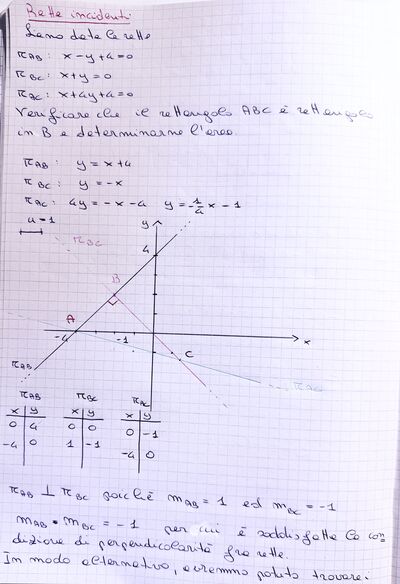 Rette incidenti
Siano date le rette
r_AB: x-y+4=0
r_BC: x+y=0
r_AC: x+4y+4=0
Verificare che il rettangolo ABC è rettangolo
in B e determinarne l'area.
r_AB: y=x+4
r_BC: y=-x
r_AC: 4y=-x-4 y=-1/4 x-1
u=1
y
r_BC
4
B
A
-4
-1
x
C
r_AB
r_AC
r_BC
r_AC
x y
x y
x y
0 4
0 0
0 -1
-4 0
1 -1
-4 0
r_AB ⊥ r_BC poiché m_AB=1 ed m_BC=-1
m_AB • m_BC = -1 per cui è soddisfatta la con
dizione di perpendicolarità fra rette.
In modo alternativo, avremmo potuto trovare: